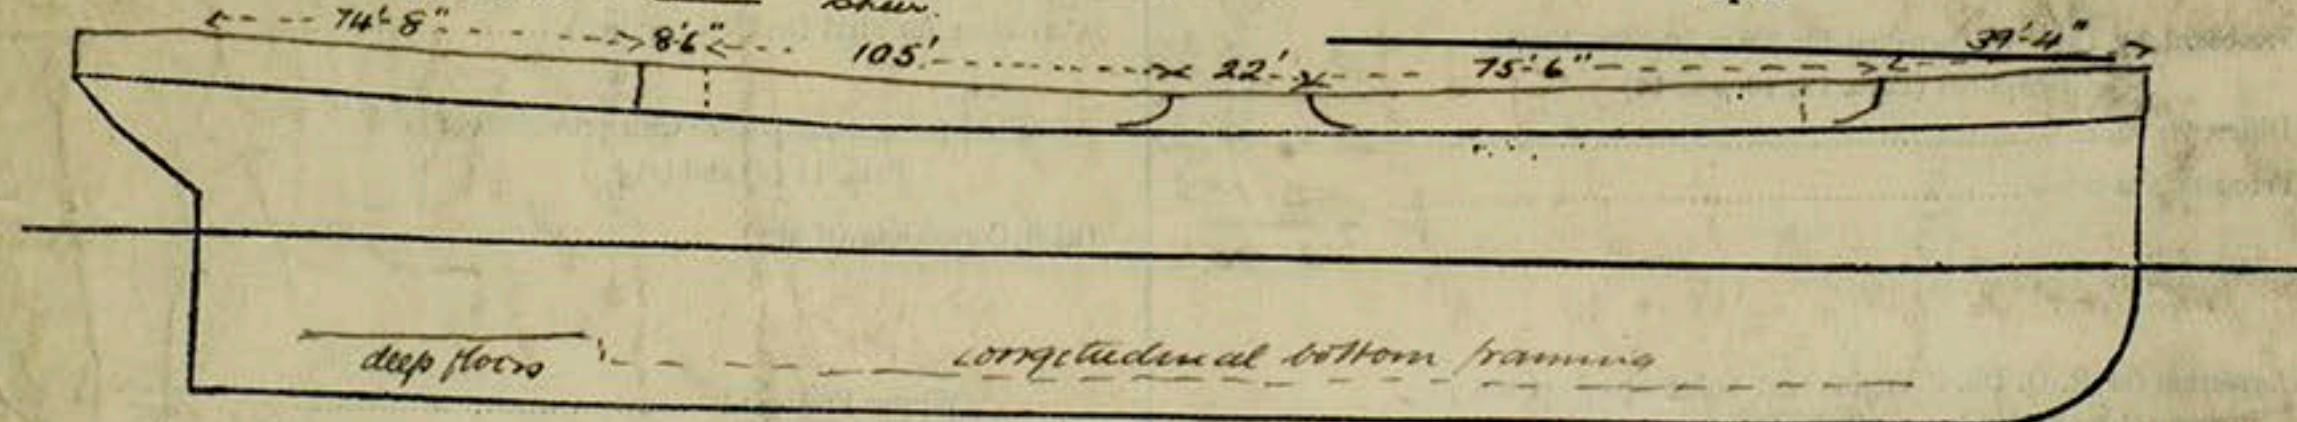 Sheer.
74'-8" 8'6" 105' 22' 75'-6" 39'-4"
deep floors longitudinal bottom framing